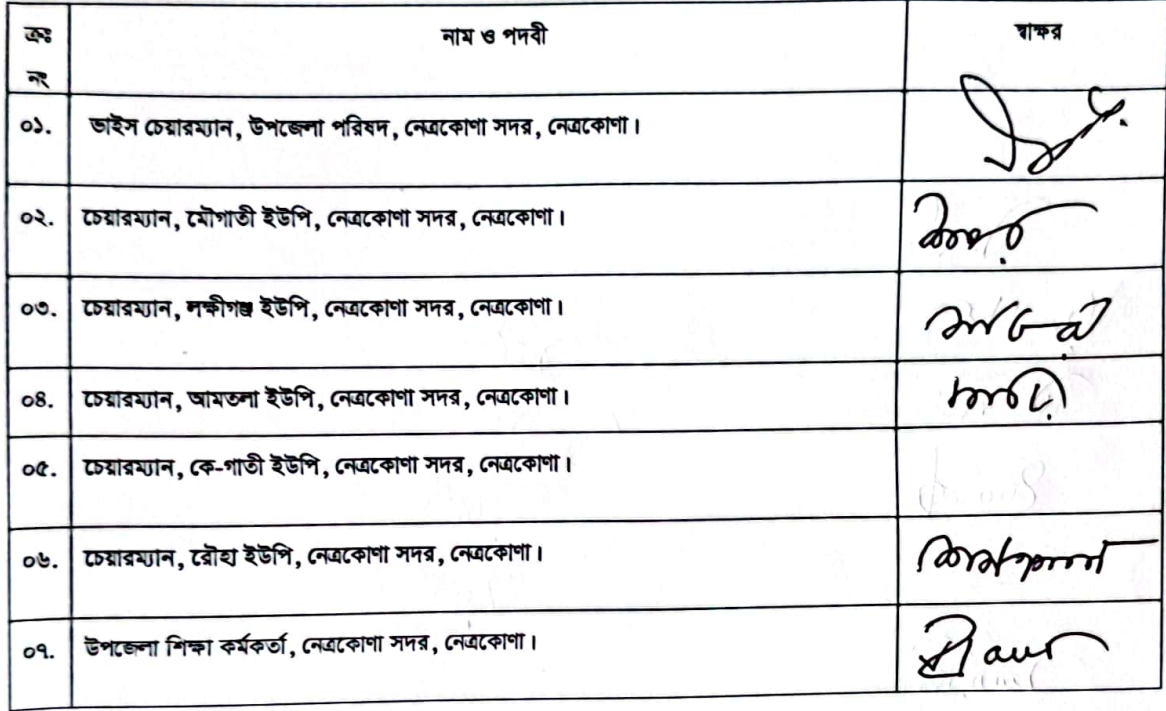 ক্রঃ নাম ও পদবী স্বাক্ষর
নং
০১. ভাইস চেয়ারম্যান, উপজেলা পরিষদ, নেত্রকোণা সদর, নেত্রকোণা।
০২. চেয়ারম্যান, মৌগাতী ইউপি, নেত্রকোণা সদর, নেত্রকোণা।
০৩. চেয়ারম্যান, লক্ষীগঞ্জ ইউপি, নেত্রকোণা সদর, নেত্রকোণা।
০৪. চেয়ারম্যান, আমতলা ইউপি, নেত্রকোণা সদর, নেত্রকোণা।
০৫. চেয়ারম্যান, কে-গাতী ইউপি, নেত্রকোণা সদর, নেত্রকোণা।
০৬. চেয়ারম্যান, রৌহা ইউপি, নেত্রকোণা সদর, নেত্রকোণা।
০৭. উপজেলা শিক্ষা কর্মকর্তা, নেত্রকোণা সদর, নেত্রকোণা।